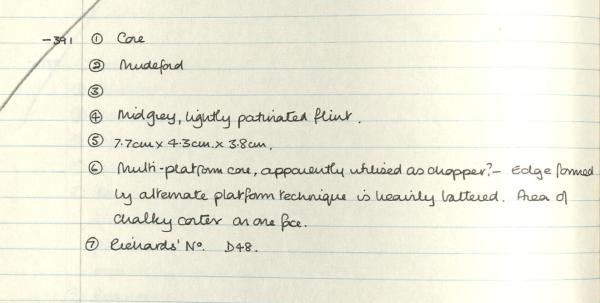 -391 ① Core
② Mudeford
③
④ Midgrey, lightly patinated flint.
⑤ 7.7cm x 4.3cm. x 3.8cm.
⑥ Multi-platform core, apparently utilised as chopper? - Edge formed
by alternate platform technique is heavily battered. Area of
chalky cortex on one face.
⑦ Richards' No. D48.